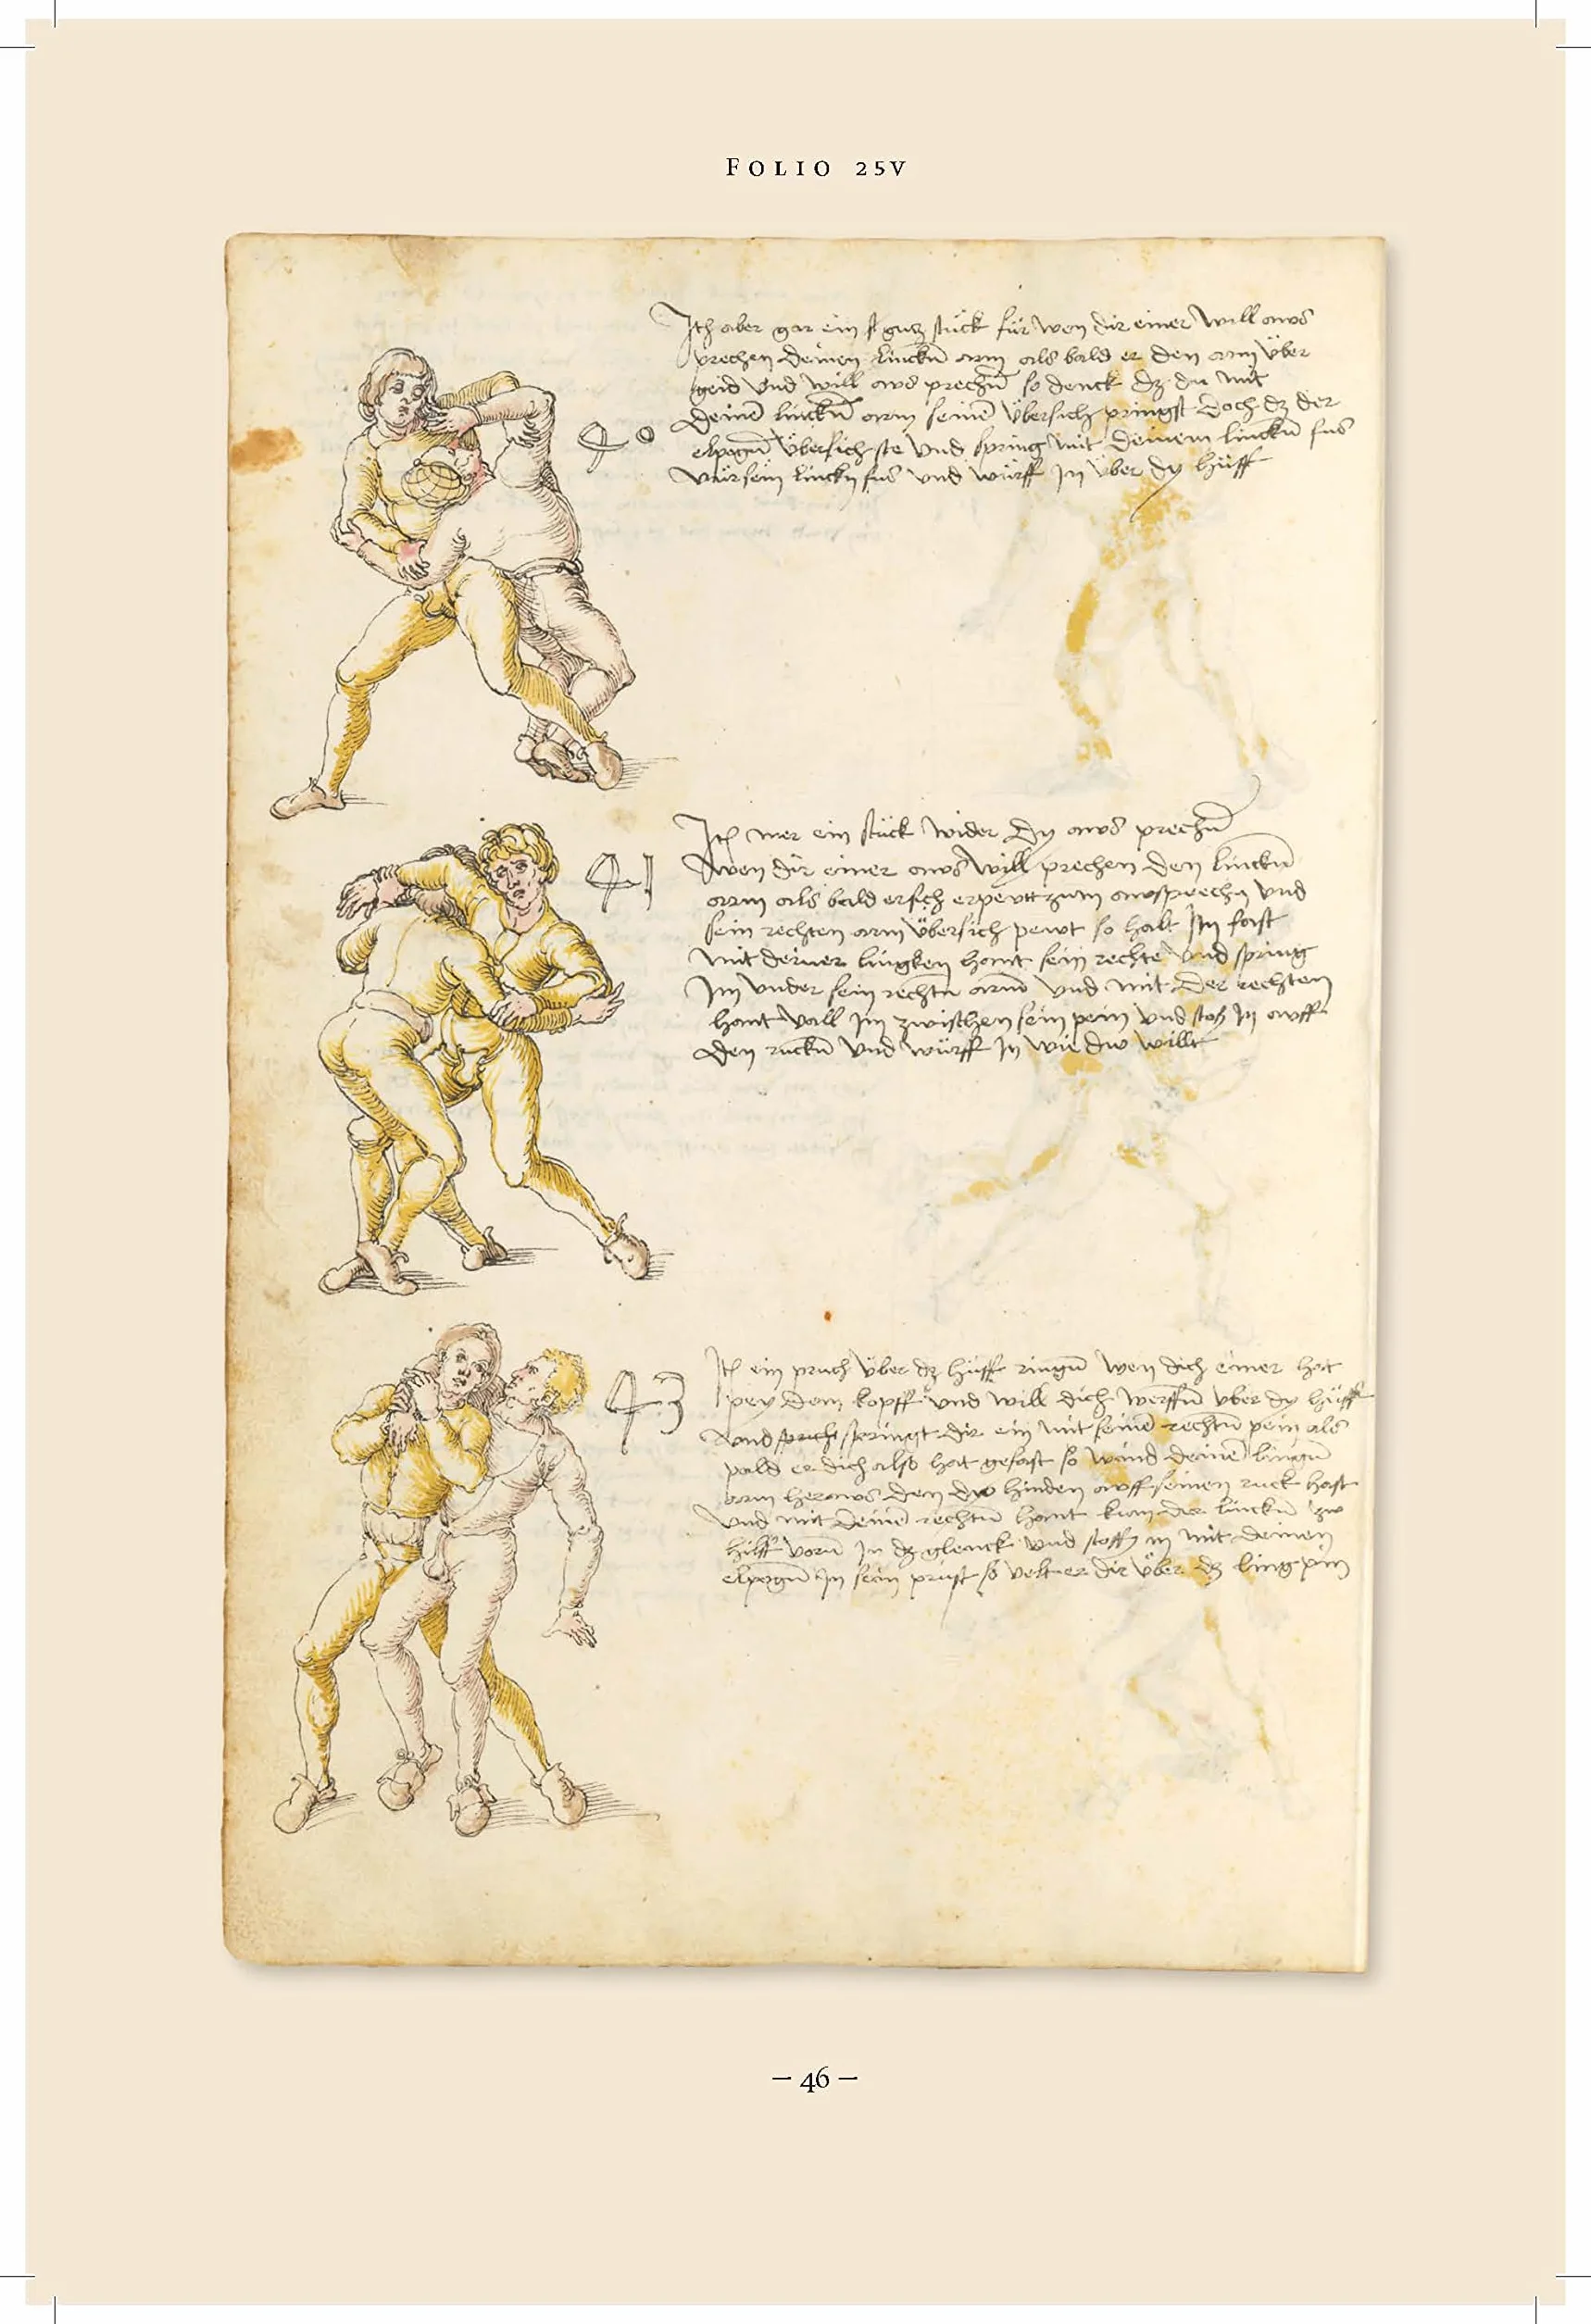 FOLIO 25V
Itch aber gar ein gutz stück für wen dir einer will aws
prechen deinen linckn̄ arm als bald er den arm über
geid vnd will aws prechn̄ so denck dz du mit
deinē linckn̄ arm seinē übersich pringst doch dz der
elpogn̄ übersich ste vnd spring mit deinem linckn̄ fus
vür sein linckn fus vnd würff in über dy hüff
40
Itch mer ein stück wider dy aws prechn̄
wen dir einer aws will prechen den linckn̄
arm als bald er sich erpeutt zum awsprechn vnd
sein rechten arm übersich pewt so halt im fast
mit deiner lingken hant sein rechte vnd spring
im vnder sein rechtn̄ arm vnd mit der rechten
hant vall im zwischen sein pein vnd stos in auff
den ruckn̄ vnd würff in wie dw willt
41
Itch ein pruch über dz hüff ringn̄ wen dich einer hat
pey dem kopff vnd will dich werffn̄ vber dy hüff
vnd springt dir ein mit seinē rechtn̄ pein als
pald er dich also hat gefast so wind deinē lingn̄
arm heraws den dw hinden auff seinen ruck hast
vnd mit deinē rechtn̄ hant kum der linckn̄ zw
hilff vorn̄ in dz glenck vnd stoss in mit deinen
elpogn̄ in sein prust so velt er dir über dz ling pin
43
– 46 –